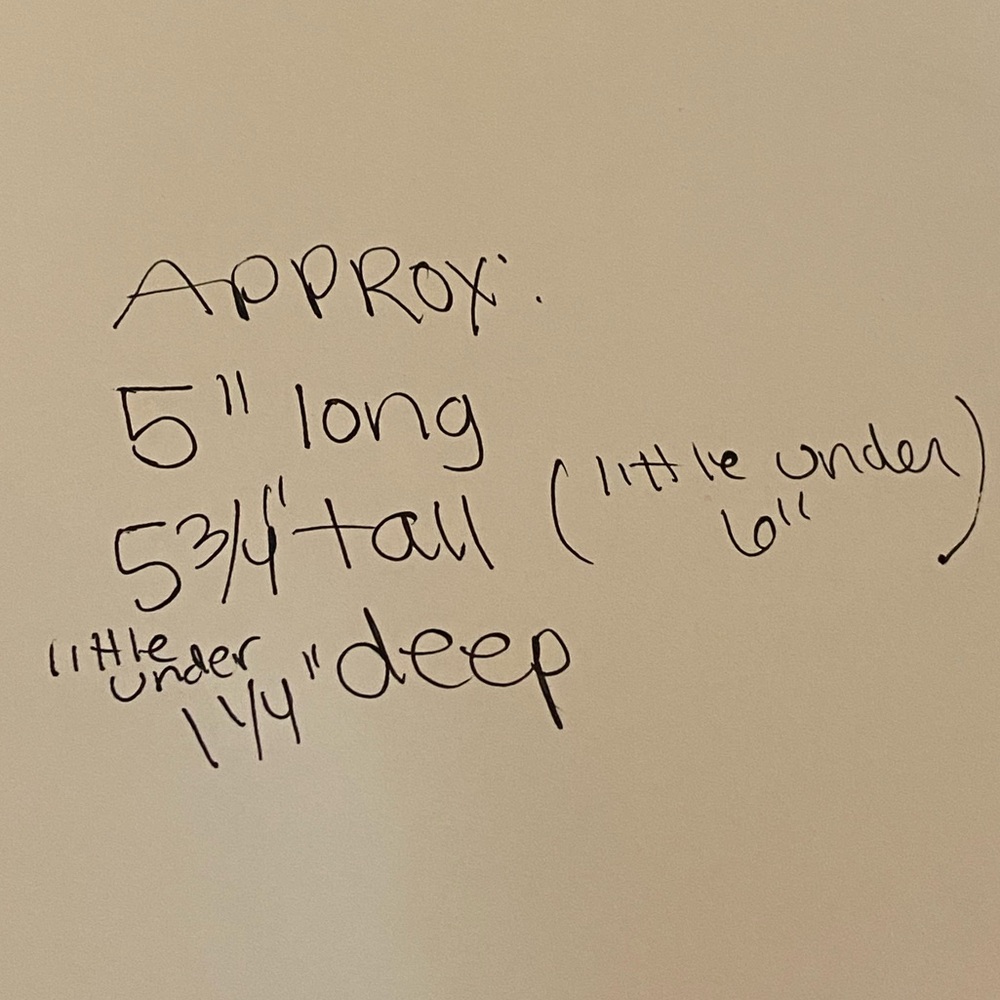 APPROX:
5" long
5 3/4" tall (little under 6")
little under 1 1/4" deep